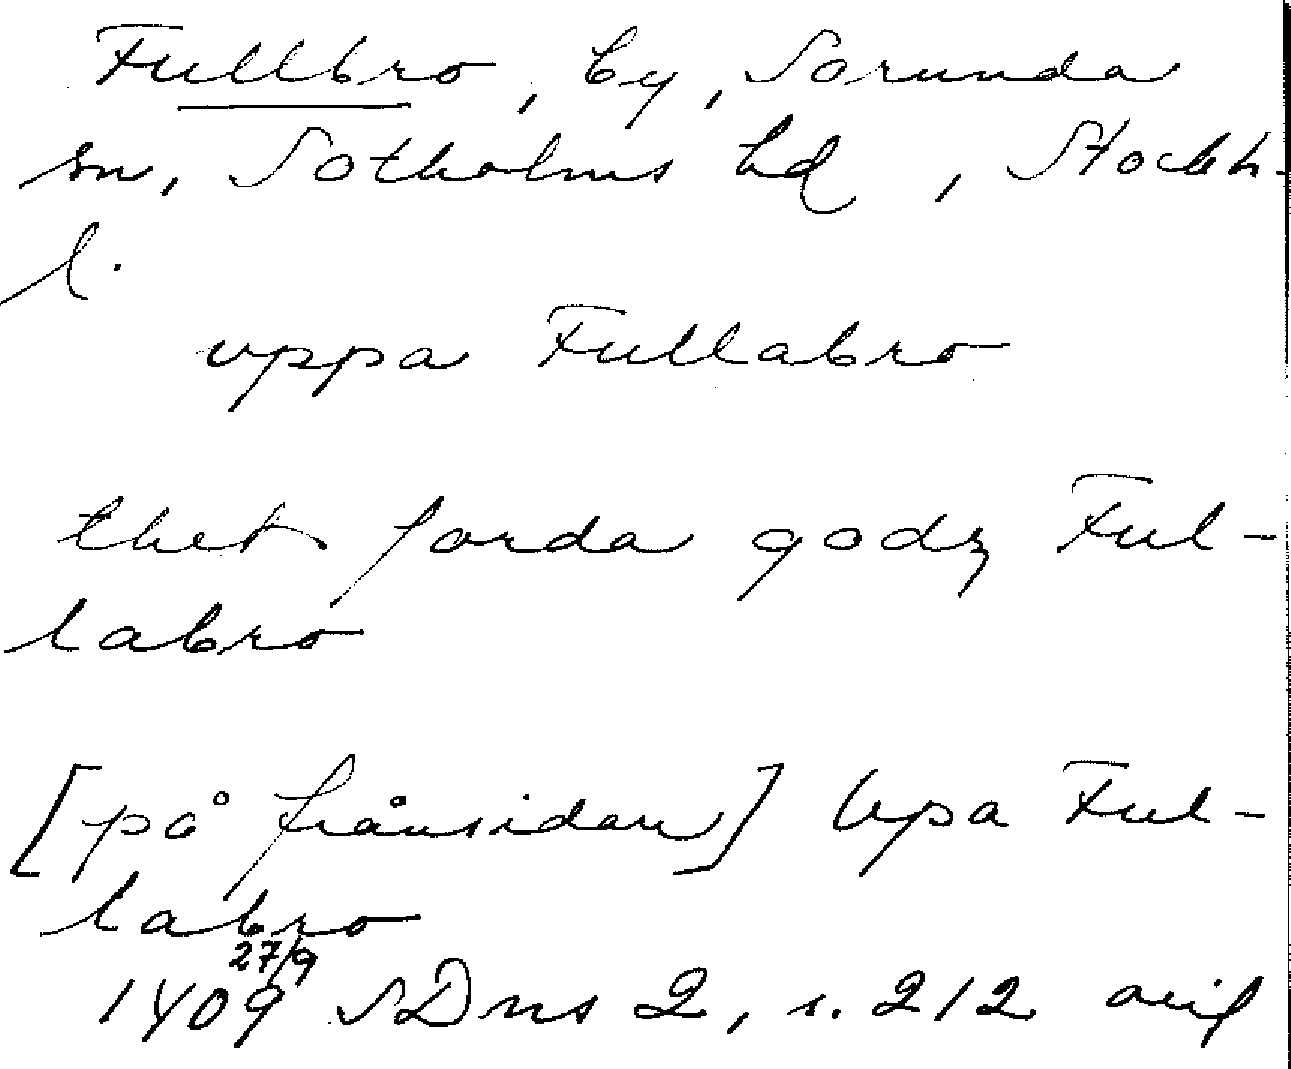 Fullbro, by, Sorunda
sn, Sotholms hd, Stockh.
l.
uppa Fullabro
thet forda godz Ful-
labro
[på frånsidan] Upa Ful-
labro
1409 27/9 SDns 2, s. 212 orig